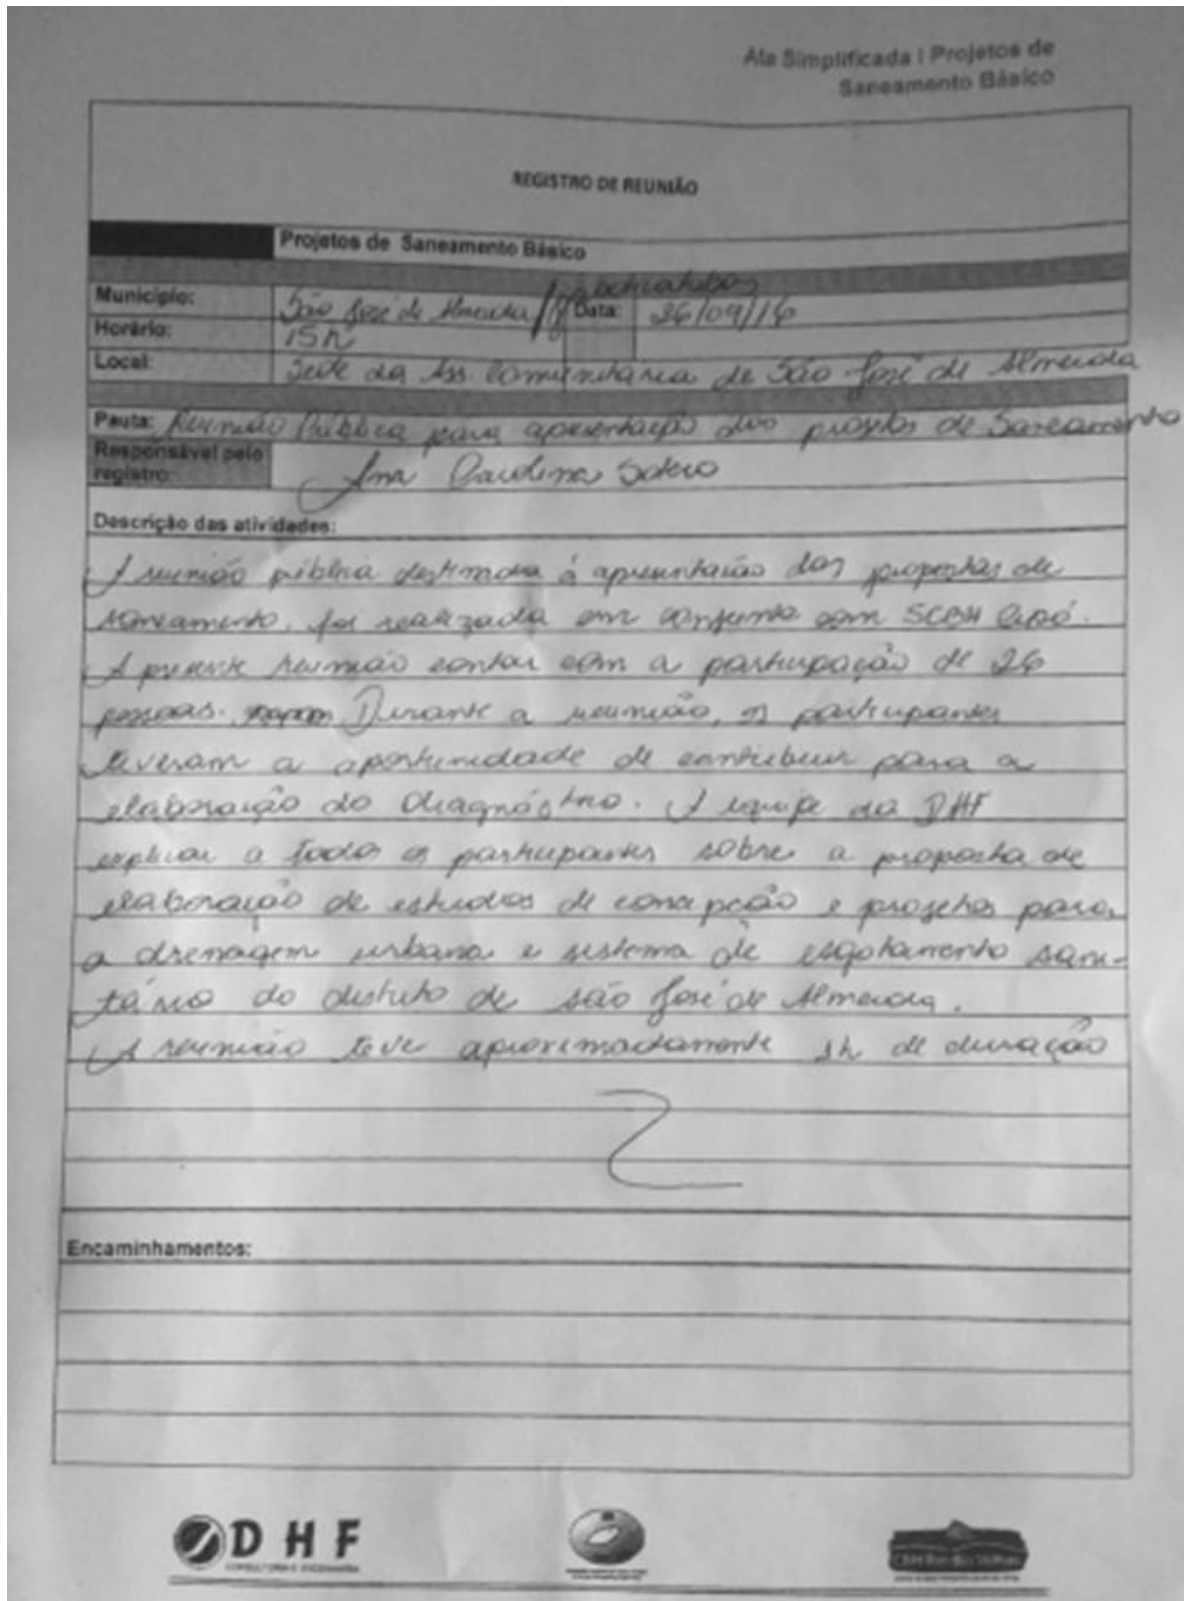 Ata Simplificada | Projetos de
Saneamento Básico
REGISTRO DE REUNIÃO
Projetos de Saneamento Básico
Município: São José de Almeida / Jaboticatubas Data: 26/09/16
Horário: 15h
Local: Sede da Ass. Comunitária de São José de Almeida
Pauta: Reunião Pública para apresentação dos projetos de Saneamento
Responsável pelo
registro: Ana Carolina Sotero
Descrição das atividades:
A reunião pública destinada à apresentação das propostas de
saneamento, foi realizada em conjunto com SCBH Cipó.
A presente reunião contou com a participação de 26
pessoas. Durante a reunião, os participantes
tiveram a oportunidade de contribuir para a
elaboração do diagnóstico. A equipe da DHF
explicou a todos os participantes sobre a proposta de
elaboração de estudos de concepção e projetos para
a drenagem urbana e sistema de esgotamento sani-
tário do distrito de São José de Almeida.
A reunião teve aproximadamente 1h de duração
Encaminhamentos:
DHF
CONSULTORIA E ENGENHARIA
CBH Rio das Velhas